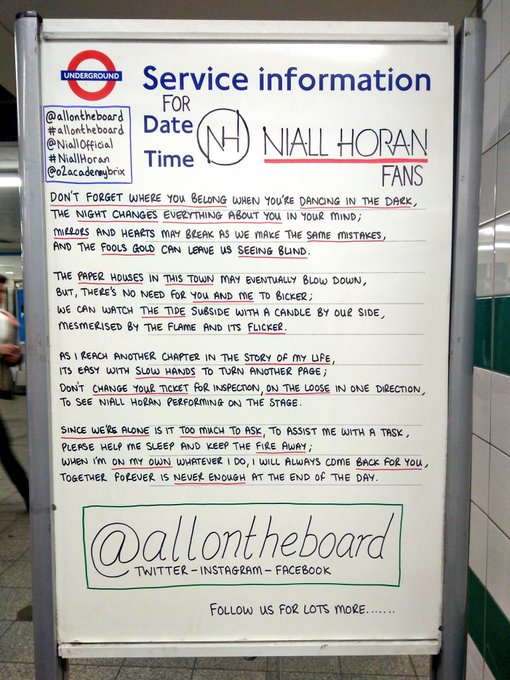 UNDERGROUND
Service information
FOR
@allontheboard
#allontheboard
@NiallOfficial
#NiallHoran
@o2academybrix
Date
Time
NH
NIALL HORAN
FANS
DON'T FORGET WHERE YOU BELONG WHEN YOU'RE DANCING IN THE DARK,
THE NIGHT CHANGES EVERYTHING ABOUT YOU IN YOUR MIND;
MIRRORS AND HEARTS MAY BREAK AS WE MAKE THE SAME MISTAKES,
AND THE FOOLS GOLD CAN LEAVE US SEEING BLIND.
THE PAPER HOUSES IN THIS TOWN MAY EVENTUALLY BLOW DOWN,
BUT, THERE'S NO NEED FOR YOU AND ME TO BICKER;
WE CAN WATCH THE TIDE SUBSIDE WITH A CANDLE BY OUR SIDE,
MESMERISED BY THE FLAME AND ITS FLICKER.
AS I REACH ANOTHER CHAPTER IN THE STORY OF MY LIFE,
ITS EASY WITH SLOW HANDS TO TURN ANOTHER PAGE;
DON'T CHANGE YOUR TICKET FOR INSPECTION, ON THE LOOSE IN ONE DIRECTION,
TO SEE NIALL HORAN PERFORMING ON THE STAGE.
SINCE WE'RE ALONE IS IT TOO MUCH TO ASK, TO ASSIST ME WITH A TASK,
PLEASE HELP ME SLEEP AND KEEP THE FIRE AWAY;
WHEN I'M ON MY OWN WHATEVER I DO, I WILL ALWAYS COME BACK FOR YOU,
TOGETHER FOREVER IS NEVER ENOUGH AT THE END OF THE DAY.
@allontheboard
TWITTER - INSTAGRAM - FACEBOOK
FOLLOW US FOR LOTS MORE.......